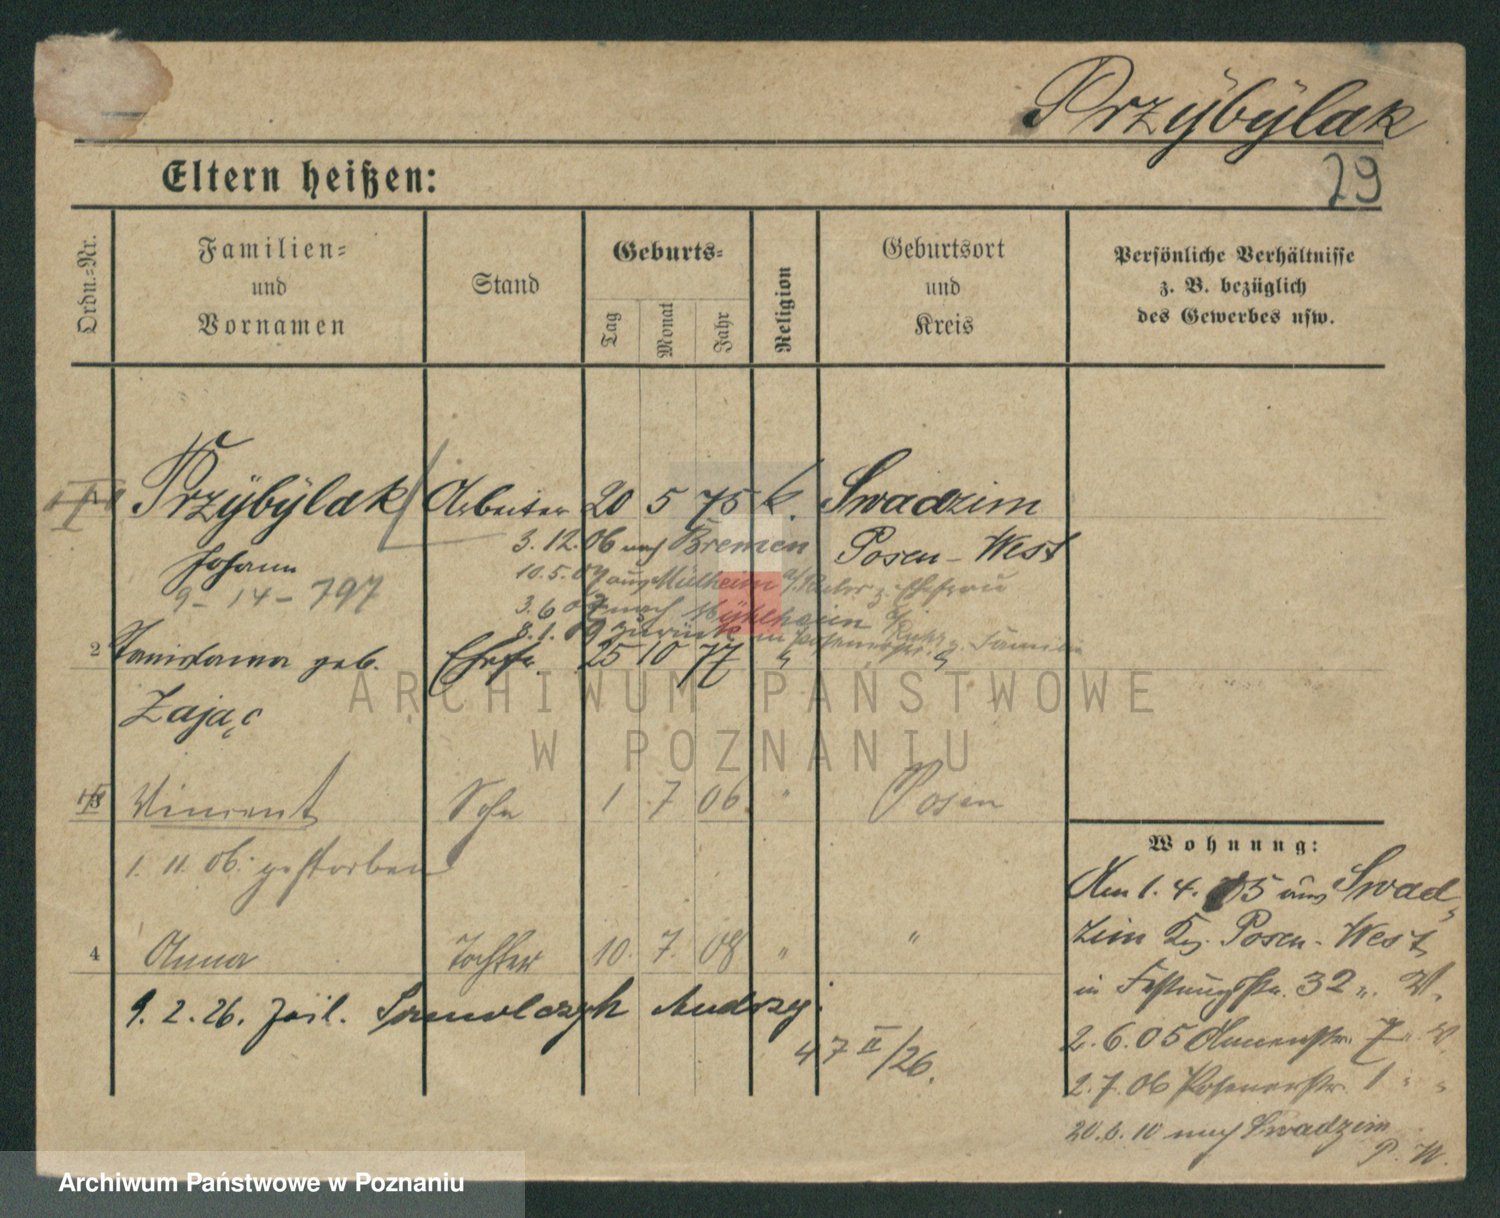 Przÿbÿlak
29
Eltern heißen:
Ordn.-Nr.
Familien-
und
Vornamen
Stand
Geburts-
Tag
Monat
Jahr
Religion
Geburtsort
und
Kreis
Persönliche Verhältnisse
z. B. bezüglich
des Gewerbes usw.
Przÿbÿlak Arbeiter 20 5 75 k. Swadzim
Johann 3.12.06 nach Bremen Posen-West
9-14-797
10.5.07 aus Mülheim
3.6.07 nach Mühlheim a/ Ruhr
8.1.09 zurück in Posenerstr. z. Familie
2 Stanislawa geb. Ehefr. 25 10 77 " "
Zając
3 Vincent Sohn 1 7 06 " Posen
1. 11. 06. gestorben
4 Anna Tochter 10. 7. 08 " "
9. 2. 26. Andrzej
47 II/26.
Wohnung:
Am 1. 4. 05 aus Swad-
zim Kr. Posen-West
in Festungsstr. 32
2.6.05 7
2.7.06 Posenerstr. 1
20.6.10 nach Swadzim
P. W.
ARCHIWUM PAŃSTWOWE
W POZNANIU
Archiwum Państwowe w Poznaniu